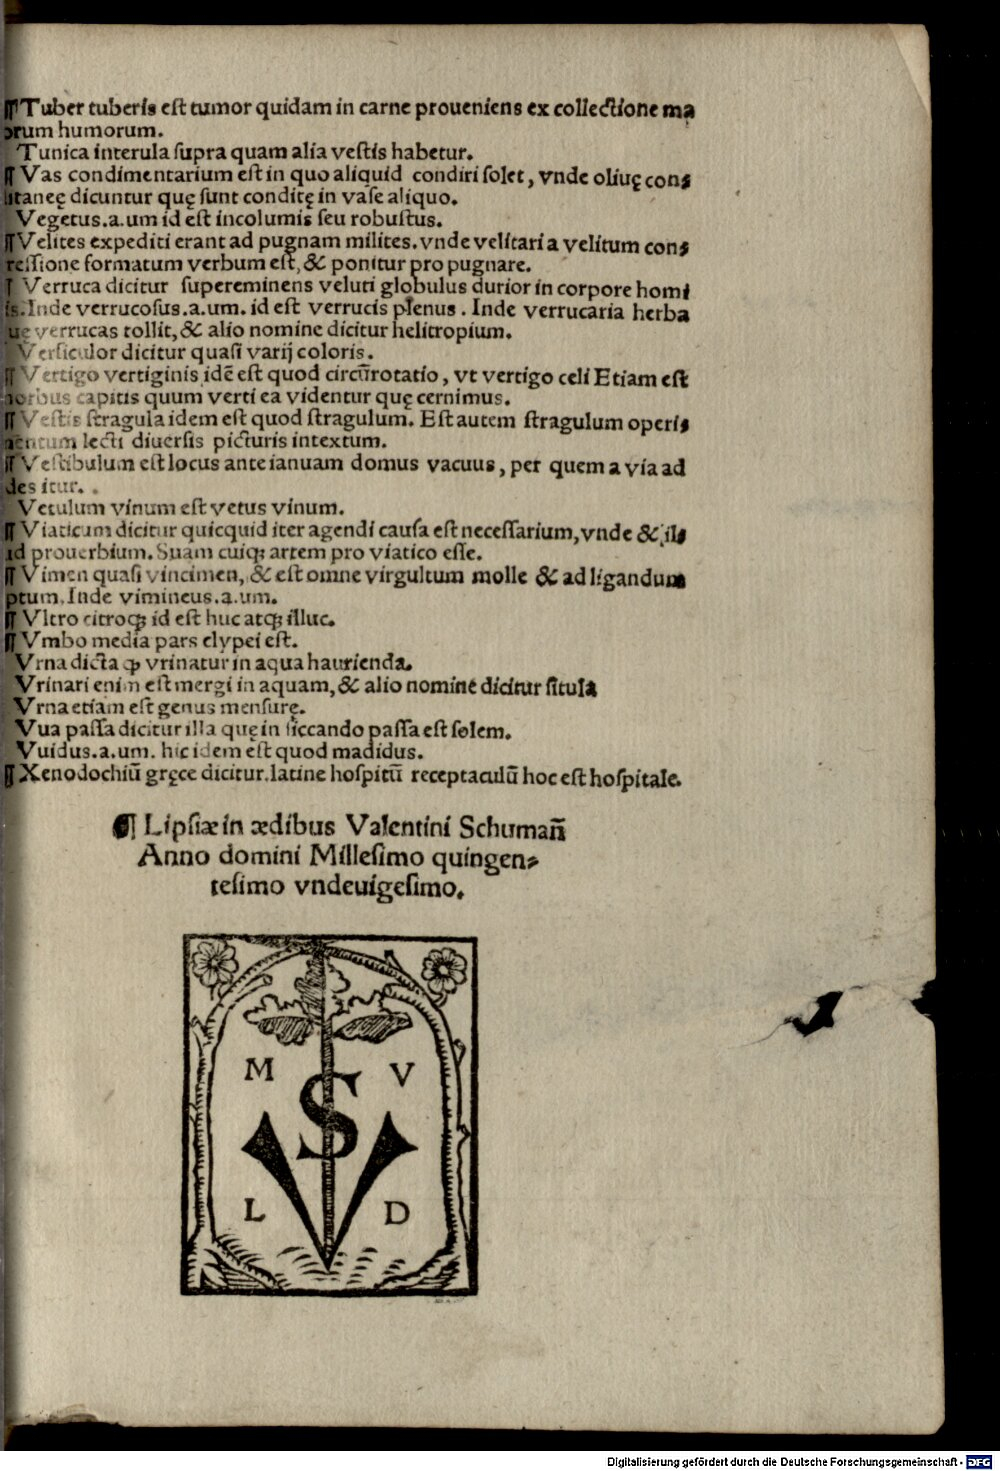 ¶ Tuber tuberis est tumor quidam in carne proueniens ex collectione ma
orum humorum.
Tunica interula supra quam alia vestis habetur.
¶ Vas condimentarium est in quo aliquid condiri solet, vnde oliuę con⸗
litaneę dicuntur quę sunt conditę in vase aliquo.
Vegetus.a.um id est incolumis seu robustus.
¶ Velites expediti erant ad pugnam milites. vnde velitari a velitum con⸗
ressione formatum verbum est, & ponitur pro pugnare.
¶ Verruca dicitur supereminens veluti globulus durior in corpore homi
is. Inde verrucosus.a.um. id est verrucis plenus. Inde verrucaria herba
uę verrucas tollit, & alio nomine dicitur helitropium.
Versicolor dicitur quasi varij coloris.
¶ Vertigo vertiginis idē est quod circūrotatio, vt vertigo celi Etiam est
orbus capitis quum verti ea videntur quę cernimus.
¶ Vestis stragula idem est quod stragulum. Est autem stragulum operi⸗
mentum lecti diuersis picturis intextum.
¶ Vestibulum est locus ante ianuam domus vacuus, per quem a via ad
des itur.
Vetulum vinum est vetus vinum.
¶ Viaticum dicitur quicquid iter agendi causa est necessarium, vnde & il⸗
ud prouerbium. Suam cuiqꝫ artem pro viatico esse.
¶ Vimen quasi vincimen, & est omne virgultum molle & ad ligandum
ptum. Inde vimineus.a.um.
¶ Vltro citroqꝫ id est huc atqꝫ illuc.
¶ Vmbo media pars clypei est.
Vrna dicta ꝙ vrinatur in aqua haurienda.
Vrinari enim est mergi in aquam, & alio nomine dicitur situla
Vrna etiam est genus mensurę.
Vua passa dicitur illa quę in siccando passa est solem.
Vuidus.a.um. hic idem est quod madidus.
¶ Xenodochiū gręce dicitur. latine hospitū receptaculū hoc est hospitale.
¶ Lipsiæ in ædibus Valentini Schumañ
Anno domini Millesimo quingen⸗
tesimo vndeuigesimo.
M V
S
L D
Digitalisierung gefördert durch die Deutsche Forschungsgemeinschaft - DFG